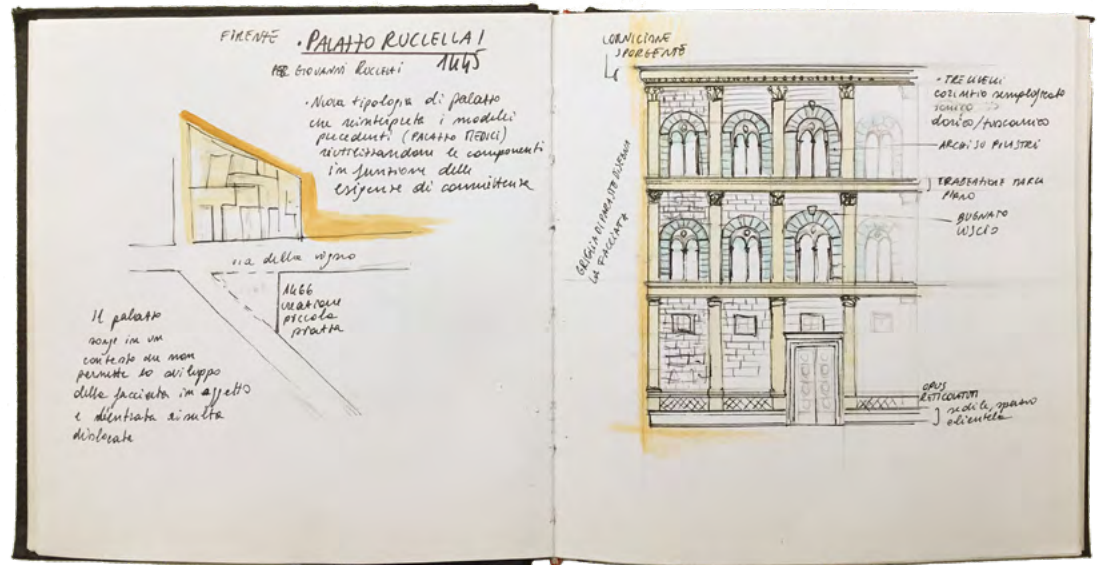 FIRENZE
• PALAZZO RUCELLAI
PER GIOVANNI RUCELLAI 1445
• Nuova tipologia di palazzo
che reinterpreta i modelli
precedenti (PALAZZO MEDICI)
riutilizzandone le componenti
in funzione delle
esigenze di committenza
via della vigna
1466
creazione
piccola
piazza
Il palazzo
sorge in un
contesto che non
permette lo sviluppo
della facciata in aggetto
e l'entrata risulta
dislocata
CORNICIONE
SPORGENTE
GRIGLIA DI PARASTE DISEGNA
LA FACCIATA
• TRE LIVELLI
corinzio semplificato
ionico
dorico/tuscanico
ARCHI SU PILASTRI
TRABEAZIONE MARCA
PIANO
BUGNATO
LISCIO
OPUS
RETICOLATUM
sedile, spazio
clientela